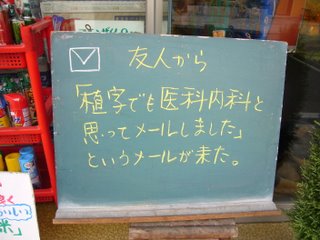 友人から
「植字でも医科内科と
思ってメールしました」
というメールが来た。
米